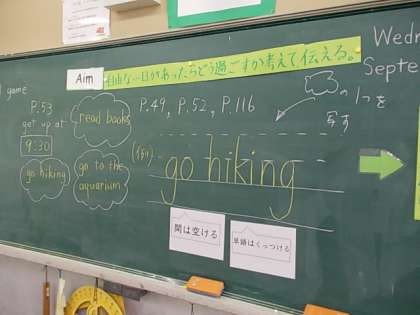 game
P.53
get up at
9:30
go hiking
Aim
自由な一日があったらどう過ごすか考えて伝える。
read books
go to the
aquarium
P.49, P.52, P.116
(例)
go hiking
の1つを
写す
間は空ける
単語はくっつける
Wedn
Septe